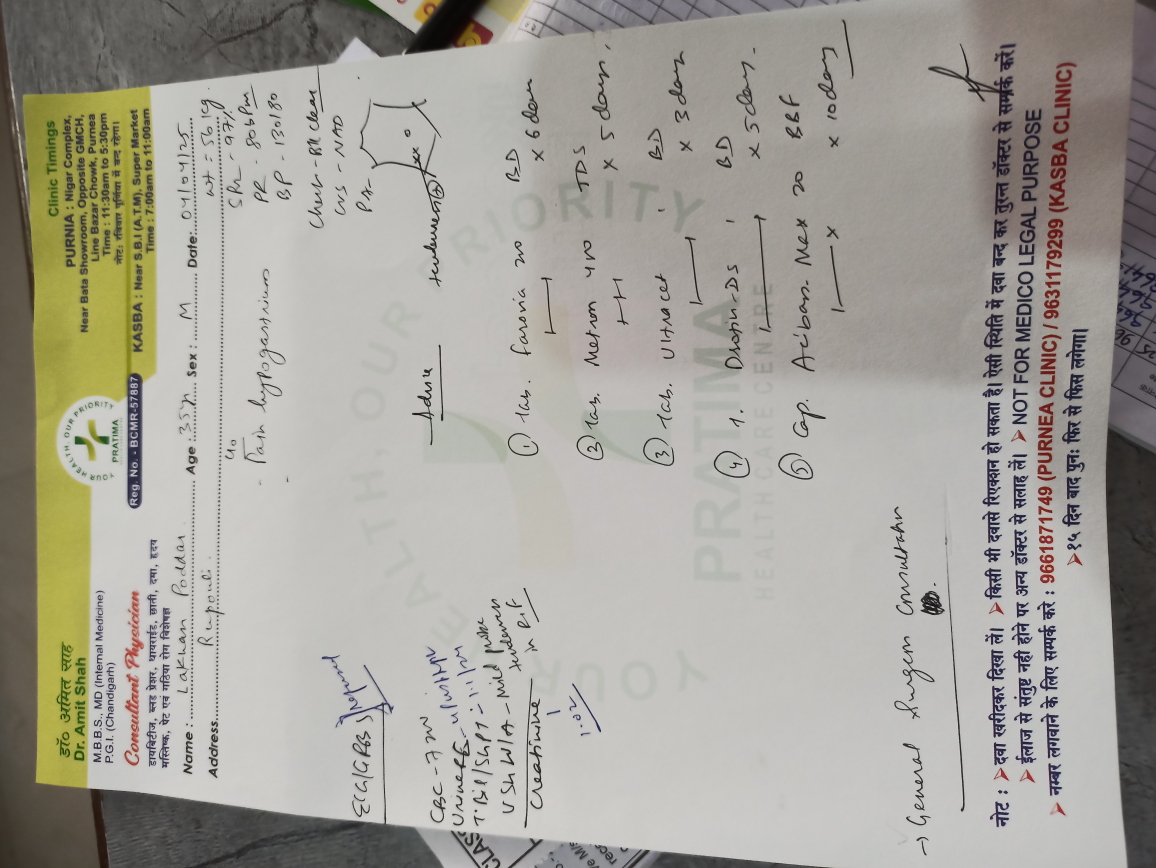 डॉ० अमित साह
Dr. Amit Shah
M.B.B.S., MD (Internal Medicine)
P.G.I. (Chandigarh)
Consultant Physician
डायबिटीज, ब्लड प्रेशर, थायराईड, छाती, दमा, हृदय
मस्तिष्क, पेट एवं गठिया रोग विशेषज्ञ
YOUR HEALTH, OUR PRIORITY
PRATIMA
Reg. No. - BCMR-57887
Clinic Timings
PURNIA : Nigar Complex,
Near Bata Showroom, Opposite GMCH,
Line Bazar Chowk, Purnea
Time : 11:30am to 5:30pm
नोट: रविवार पूर्णिया में बन्द रहेगा।
KASBA : Near S.B.I (A.T.M), Super Market
Time : 7:00am to 11:00am
Name : Lakhan Poddar Age : 35y Sex : M Date: 04/04/25
Address Rupouli
wt = 56 kg
c/o
- Pain hypogastrium
SPO2 - 97%
PR - 80bpm
BP - 130/80
Chest - B/L clear
CVS - NAD
P/A
tenderness
ECG/GRBS
CBC - 7200
T.Bil/SGPT - 1.1/24
USG W/A - mild probe
tenderness
in RIF
Creatinine
1.02
Advise
① Tab. Farovia 200 BD
x 6 days
② Tab. Metron 400 TDS
x 5 days
③ Tab. Ultracet BD
x 3 days
④ T. Drotin-DS BD
x 5 days
⑤ Cap. Aciban Max 20 BBF
x 10 days
→ General Surgeon Consultation
YOUR HEALTH, OUR PRIORITY
PRATIMA
HEALTH CARE CENTRE
नोट : ➤ दवा खरीदकर दिखा लें। ➤ किसी भी दवासे रिएक्शन हो सकता है। ऐसी स्थिति में दवा बन्द कर तुरन्त डॉक्टर से सम्पर्क करें।
➤ ईलाज से संतुष्ट नही होने पर अन्य डॉक्टर से सलाह लें। ➤ NOT FOR MEDICO LEGAL PURPOSE
➤ नम्बर लगवाने के लिए सम्पर्क करे : 9661871749 (PURNEA CLINIC) / 9631179299 (KASBA CLINIC)
➤ १५ दिन बाद पुनः फिर से फिस लगेगा।